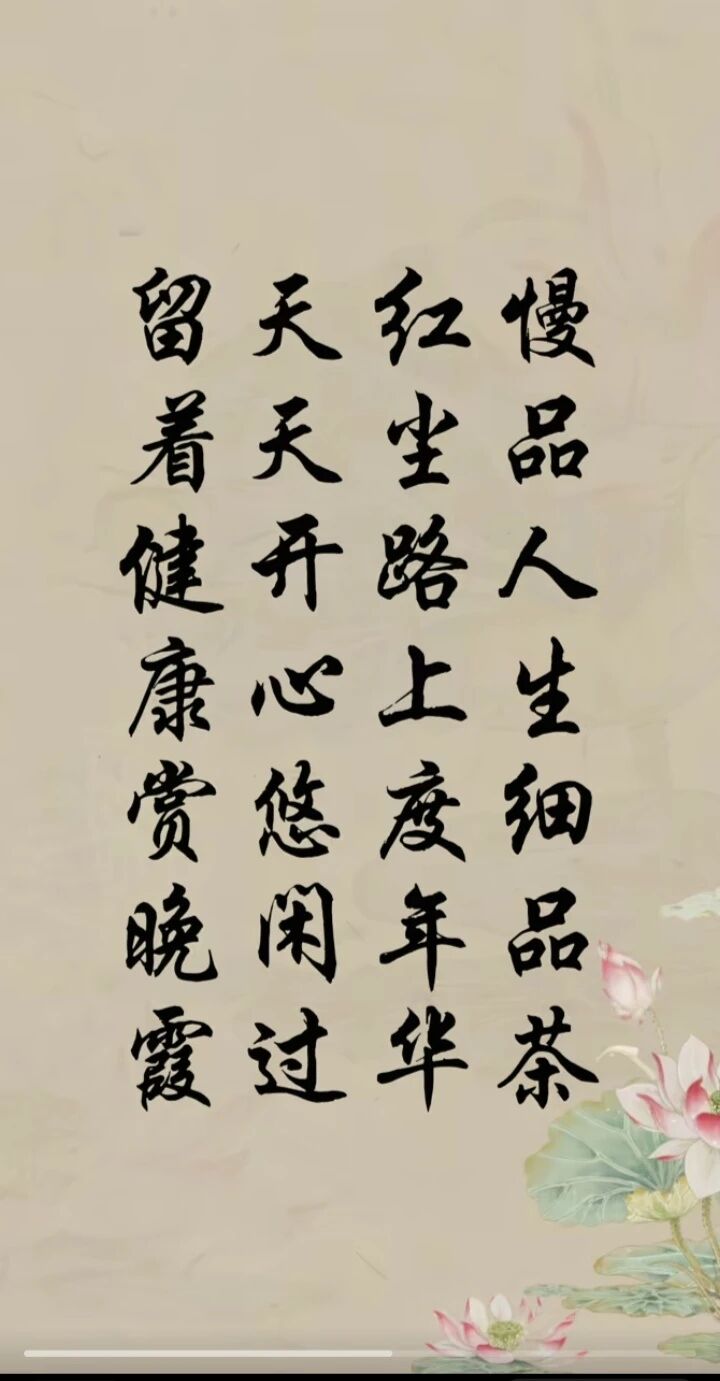 慢品人生细品茶
红尘路上度年华
天天开心悠闲过
留着健康赏晚霞